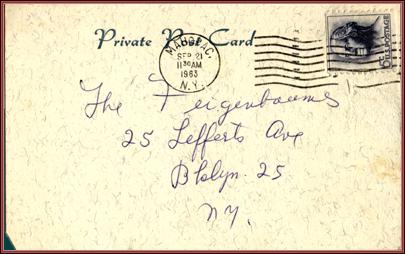 Private Post Card
MAHOPAC.
SEP 21
11 30 AM
1963
N.Y.
U.S. POSTAGE
The Feigenbaums
25 Lefferts Ave
Bklyn. 25
NY.